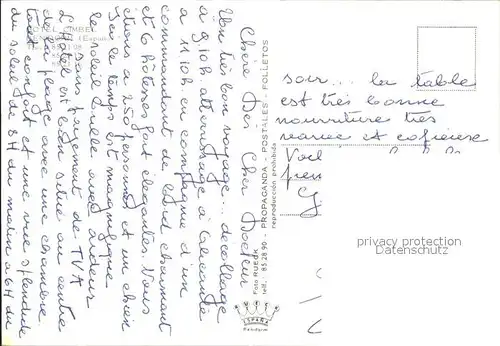 HOTEL CIMBEL
Chère Des Cher Docteur
Un très bon voyage... décollage
à 9.10h atterrissage à Alicante
à 11.10h en compagnie d'un
commandant de bord charmant
et 6 hôtesses fort élégantes. Nous
étions à 250 personnes et un chien
Ici le temps est magnifique
le soleil brille avec ardeur
sans payement de T.V.A
L'Hôtel est bien situé au centre
de la plage avec une chambre
tout confort et une vue splendide
du soleil de 8H du matin à 6H du
soir... la table
est très bonne
nourriture très
variée et copieuse
Voil
PROPAGANDA - POSTALES - FOLLETOS
reproducción prohibida
Foto RUECK
telf. 85.28.90
ESPAÑA
privacy protection
Datenschutz